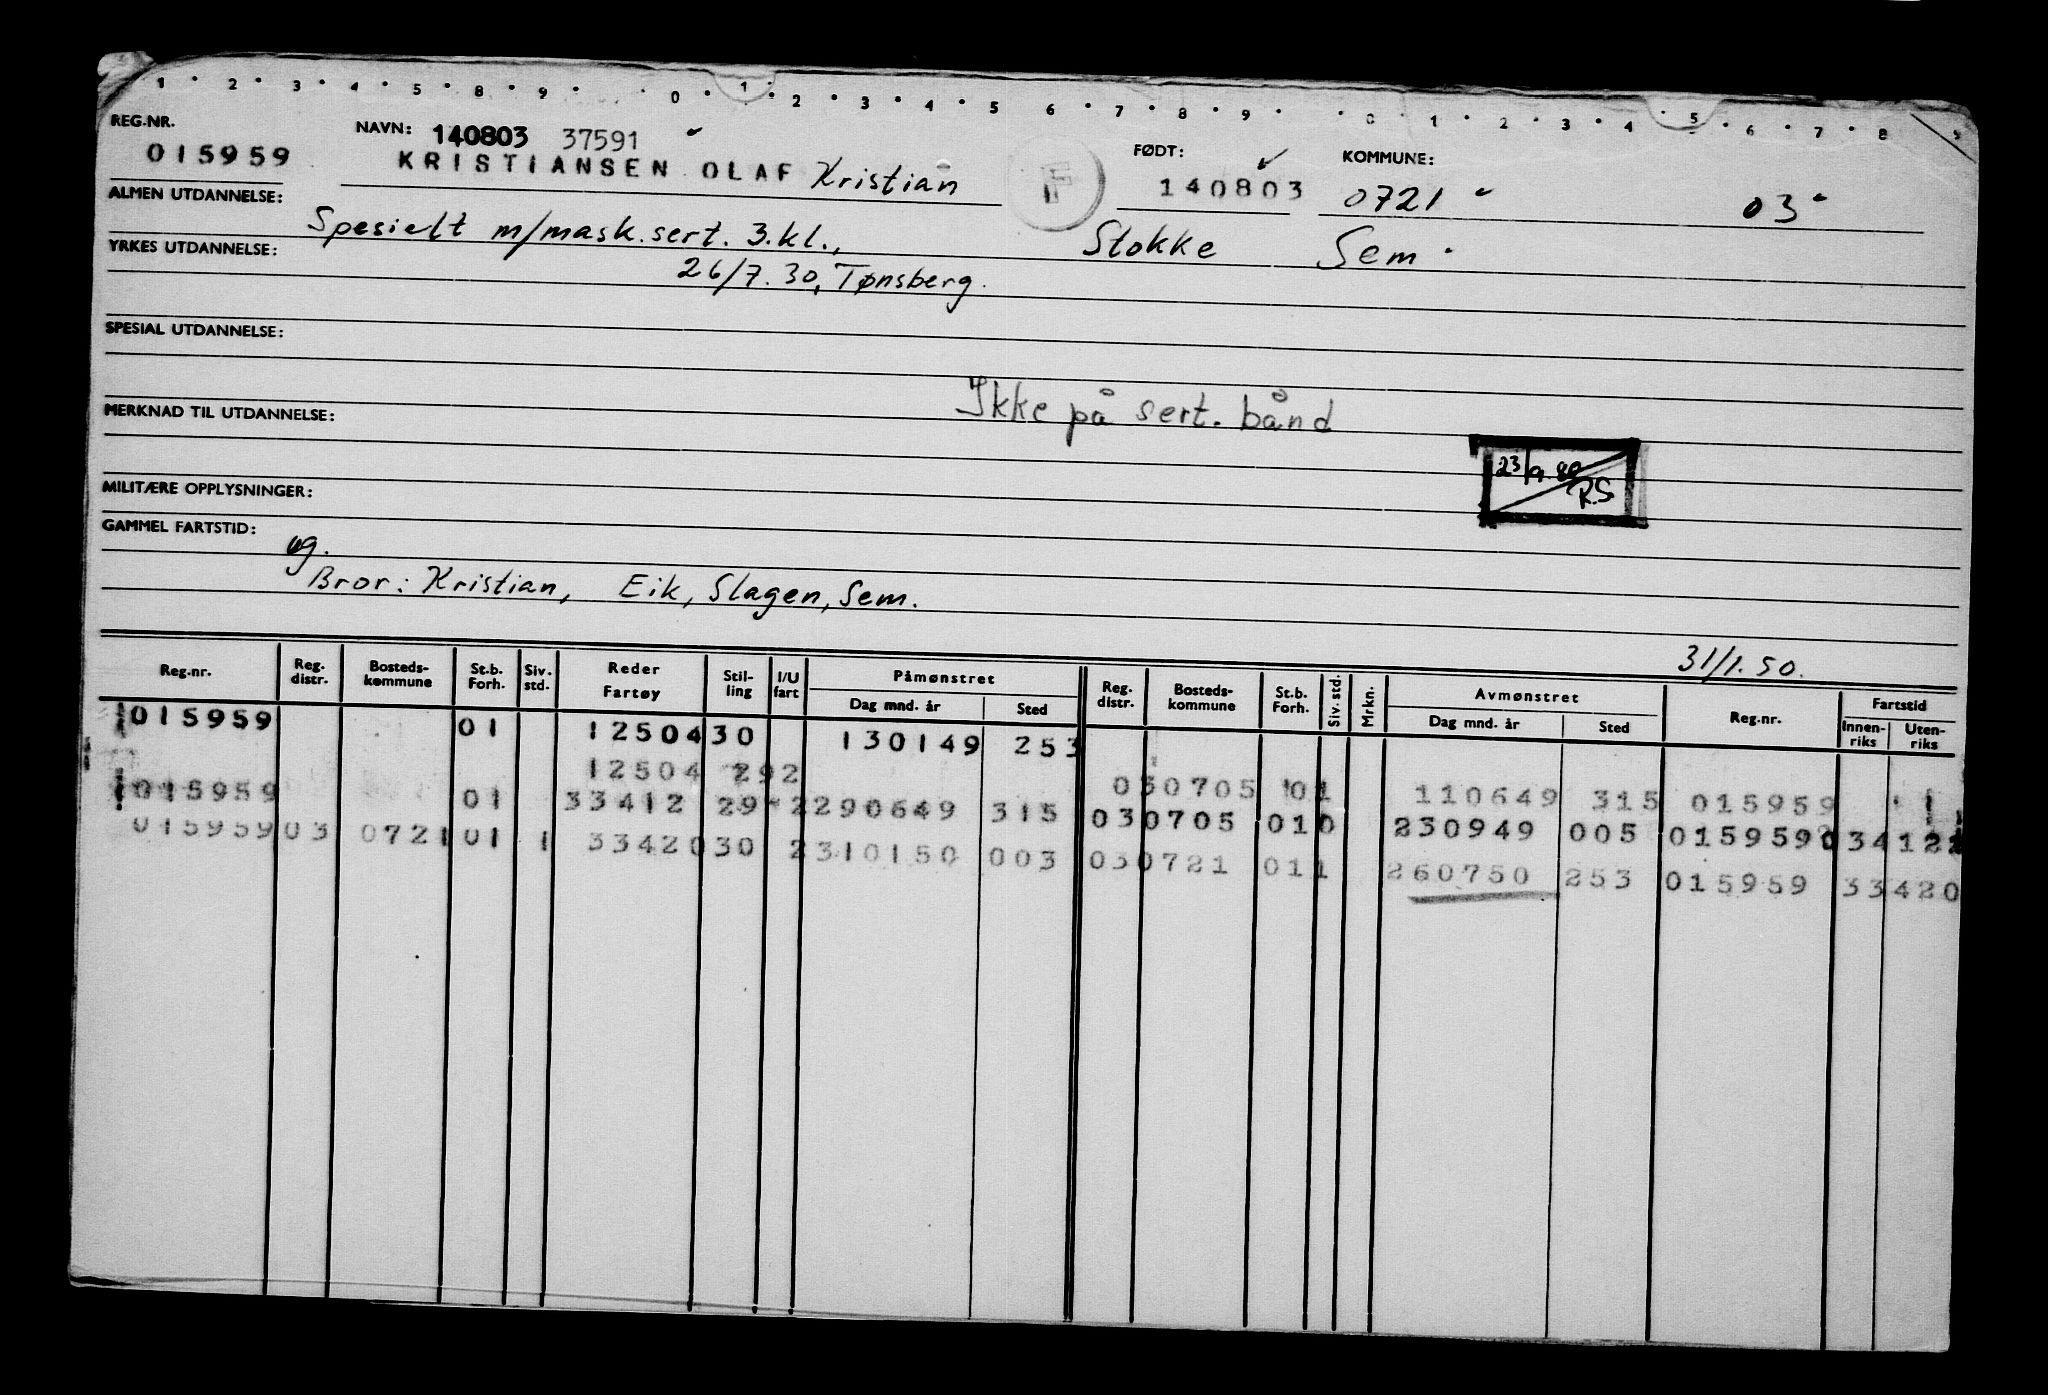 1 2 3 4 5 8 9 0 1 2 3 4 5 6 7 8 9 0 1 2 3 4 5 6 7 8 9
REG.NR. NAVN: 140803 37591 FØDT: KOMMUNE:
015959 KRISTIANSEN OLAF Kristian F 140803 0721 03
ALMEN UTDANNELSE:
Spesielt m/mask.sert. 3.kl., Stokke Sem
YRKES UTDANNELSE:
26/7.30, Tønsberg.
SPESIAL UTDANNELSE:
Ikke på sert. bånd
MERKNAD TIL UTDANNELSE:
R.S
MILITÆRE OPPLYSNINGER:
GAMMEL FARTSTID:
ug.
Bror: Kristian, Eik, Slagen, Sem.
31/1.50.
Reg.nr. Reg. distr. Bosteds-kommune St.b. Forh. Siv. std. Reder Fartøy Stil-ling I/U fart Påmønstret Dag mnd. år Sted Reg. distr. Bosteds-kommune St.b. Forh. Siv. std. Mrkn. Avmønstret Dag mnd. år Sted Reg.nr. Fartstid Innen-riks Uten-riks
015959 01 12504 30 130149 253
12504 292 030705 01 110649 315 015959
015959 01 33412 29 2 290649 315 030705 010 230949 005 015959
015959 03 0721 01 1 33420 30 2 310150 003 030721 011 260750 253 015959 33420